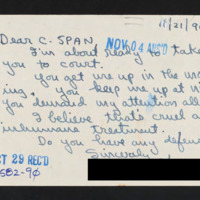 11/21/9
Dear C-SPAN,
NOV 04 ANS'D
I'm about ready to take
you to court.
You get me up in the mor
ing, you keep me up at ni
You demand my attention all
I believe that's cruel a
inhumane treatment.
Do you have any defen
CT 29 REC'D
Sincerely,
582-90